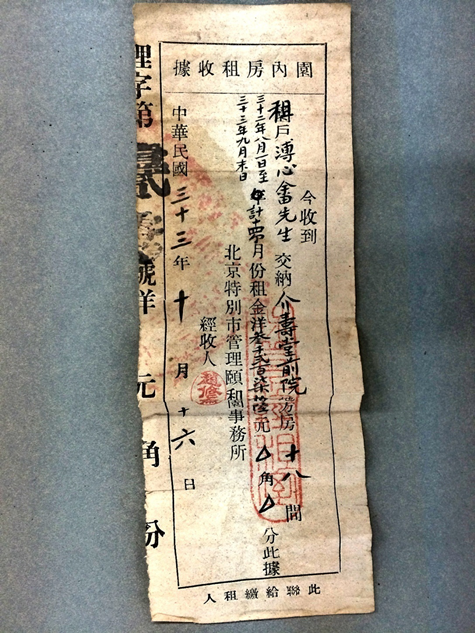 園內房租收據
今收到
租戶溥心畬先生交納介壽堂前院房十八間
三十二年八月一日至
三十三年九月末日
計十四個月份租金洋叁千弍百柒拾元△角△分此據
北京特別市管理頤和園事務所
經收人
中華民國三十三年十月十六日
理字第貳號洋元角份
此聯給繳租人